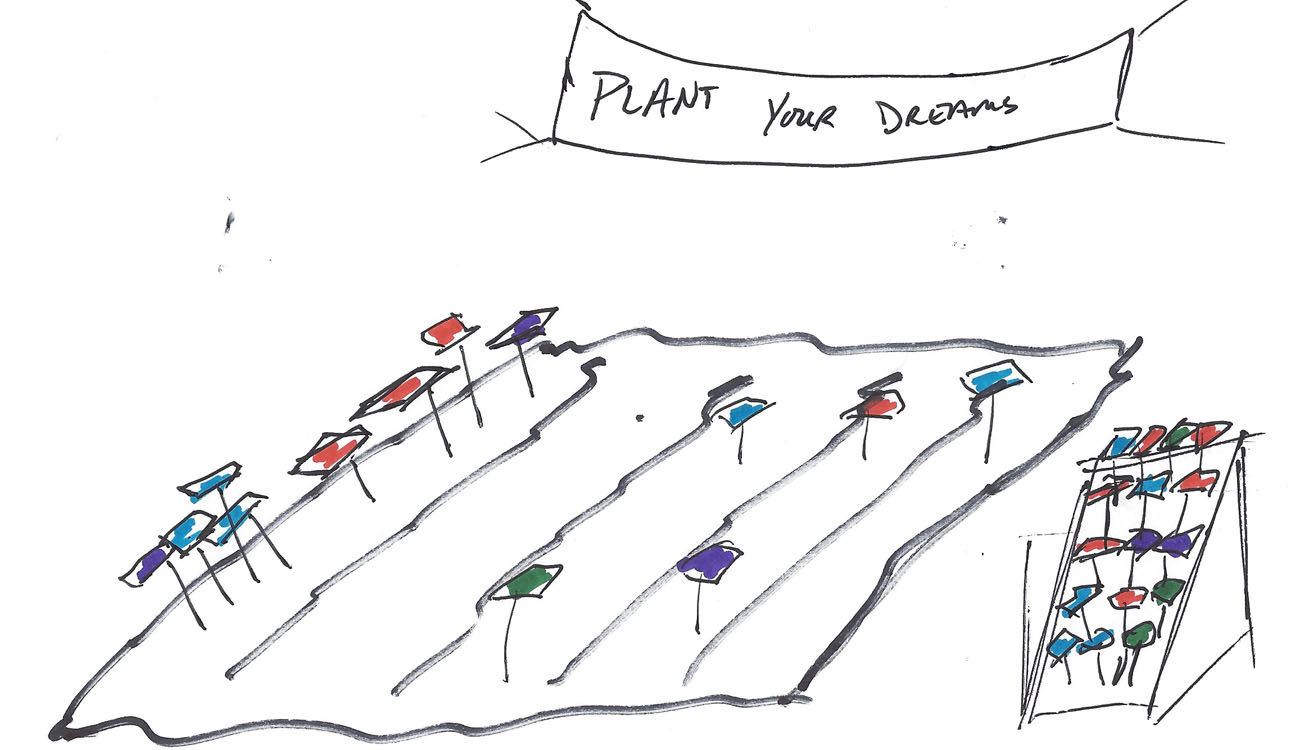 PLANT YOUR DREAMS